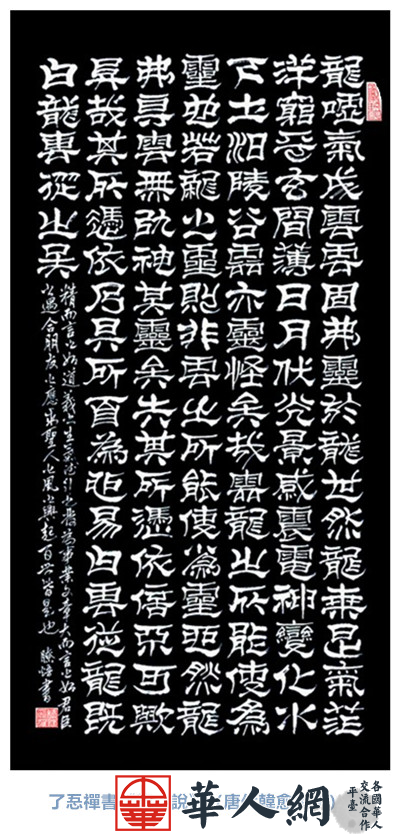 龍噓氣成雲雲固弗靈於龍也然龍乘是氣茫
洋窮乎玄間薄日月伏光景感震電神變化水
下土汩陵谷雲亦靈怪矣哉雲龍之所能使為
靈也若龍之靈則非雲之所能使為靈也然龍
弗得雲無以神其靈矣失其所憑依信不可歟
異哉其所憑依乃其所自為也易曰雲從龍既
曰龍雲從之矣
精而言之如道義之生氣德行之發為事業文章大而言之如君臣
之遇合朋友之應求聖人之風之興起百世皆是也 書
了忍禪書 說 唐代韓愈
華人網
各國華人
交流合作
平臺